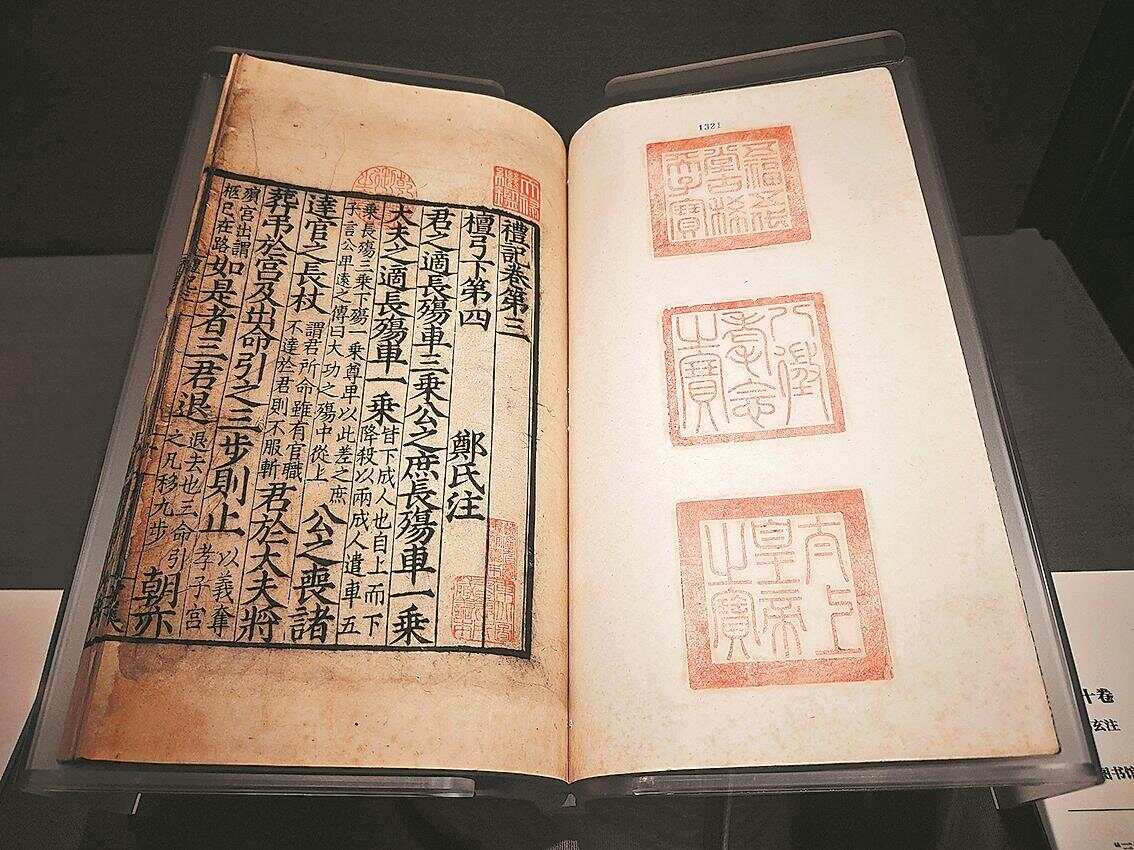 1321
五福五代
堂古稀
天子寶
八徵
耄念
之寶
太上
皇帝
之寶
天祿
繼鑑
禮記卷第三
檀弓下第四 鄭氏注
君之適長殤車三乘公之庶長殤車一乘
大夫之適長殤車一乘皆下成人也自上而下降殺以兩成人遣車五
乘長殤三乘下殤一乘尊卑以此差之庶子言公卑遠之傳曰大功之殤中從上公之喪諸
達官之長杖謂君所命雖有官職不達於君則不服斬君於大夫將
葬弔於宮及出命引之三步則止以義奪孝子宮
殯宮出謂柩已在路如是者三君退退去也三命引之凡移九步朝亦
十卷
玄注
图书馆